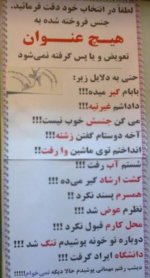 لطفاً در انتخاب خود دقت فرمائید.
جنس فروخته شده به
هیچ عنوان
تعویض و یا پس گرفته نمی‌شود
حتی به دلایل زیر:
بابام گیر میده!!!
داداشم غیرتیه!!!
می گن جنسش خوب نیست!!!
آخه دوستام گفتن زشته!!!
انداختم توی ماشین وا رفت!!
شستم آب رفت !!!
گشت ارشاد گیر می‌ده !!!
همسرم پسند نکرد !!
نظرم عوض شد !!!
محل کارم قبول نکرد !!
دوباره تو خونه پوشیدم تنگ شد !!!
دانشگاه ایراد گرفت !!!
دیشب رفتم مهمانی پوشیدم حالا دیگه نمی‌خوام!!!!!